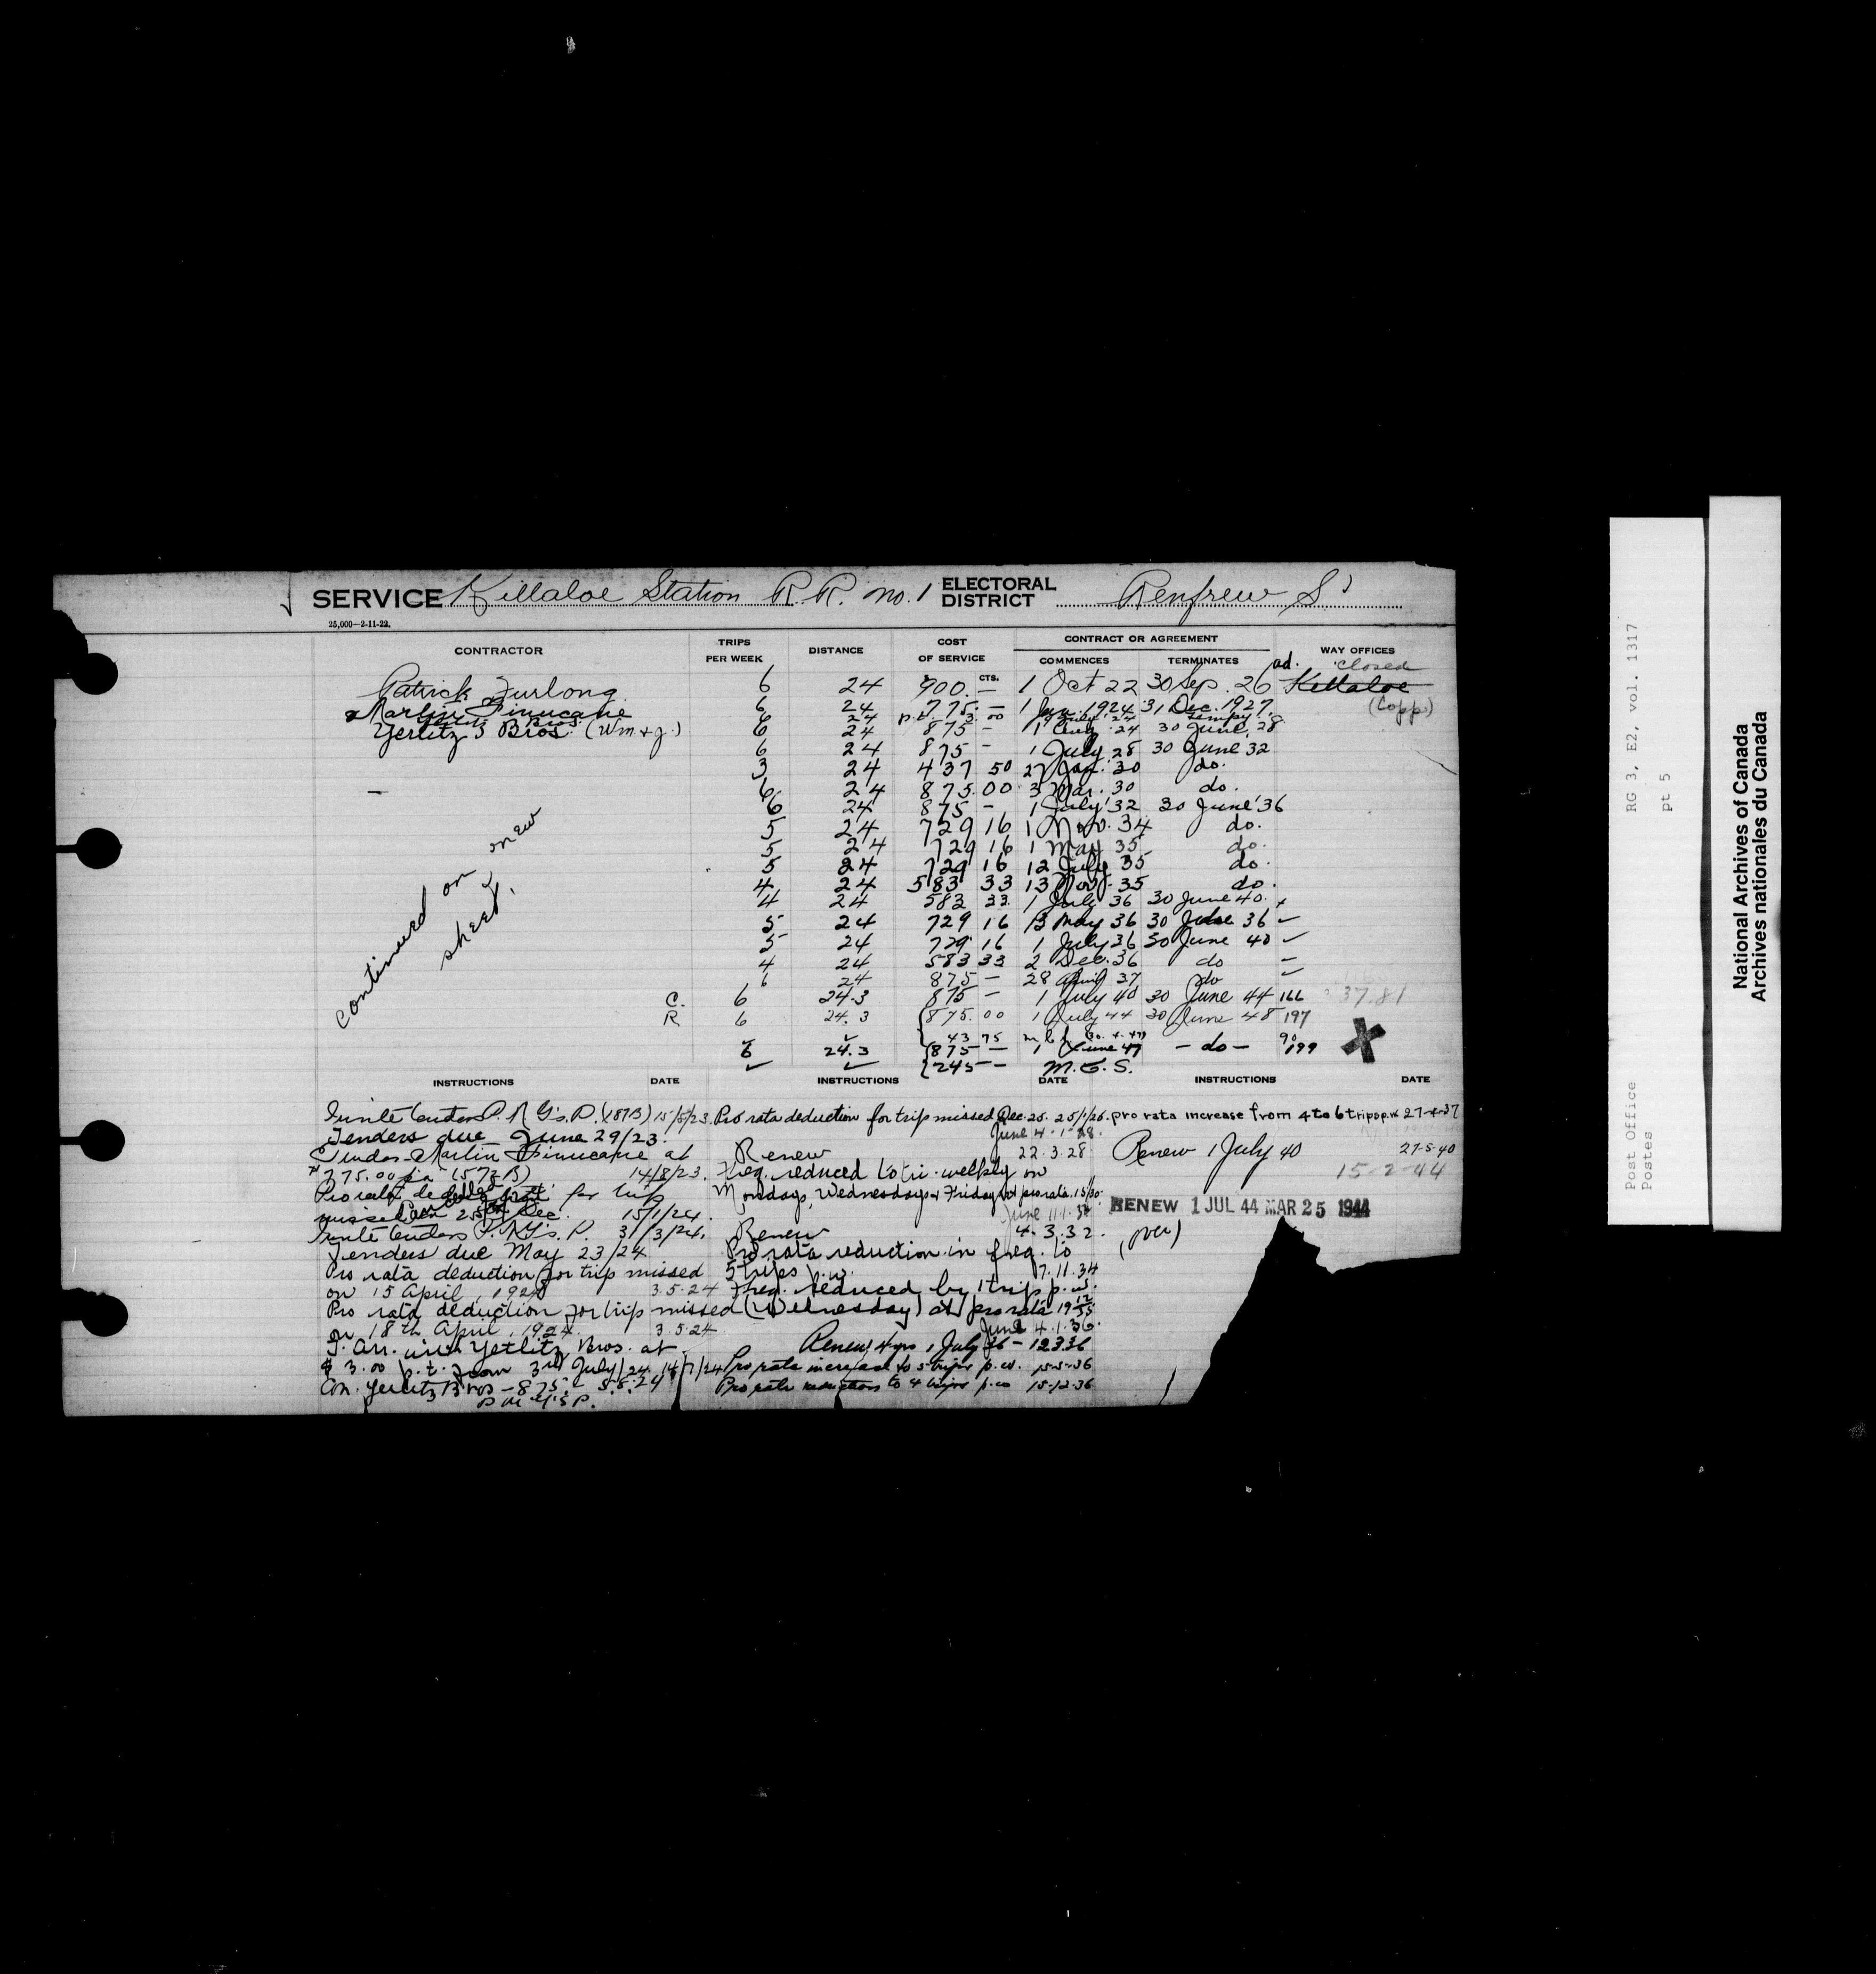 SERVICE Killaloe Station R.R. No. 1 ELECTORAL DISTRICT Renfrew S.
25,000—2-11-22.
CONTRACTOR TRIPS PER WEEK DISTANCE COST OF SERVICE CTS. CONTRACT OR AGREEMENT COMMENCES TERMINATES WAY OFFICES
ad. closed
Patrick Furlong 6 24 900. — 1 Oct 22 30 Sep. 26 Killaloe
(Copp.)
Martin Finucane 6 24 775. — 1 Jan. 1924 31 Dec. 1927
6 24 p.t. 3.00 July 24 tempy
Yerlitz Bros. (Wm & J.) 6 24 875 — 1 Aug. 24 30 June 28
6 24 875 — 1 July 28 30 June 32
3 24 437 50 27 Jan. 30 do.
6 24 875.00 3 Mar. 30 do.
6 24 875 — 1 July '32 30 June '36
5 24 729 16 1 Nov. 34 do.
5 24 729 16 1 May 35 do.
5 24 729 16 12 July 35 do.
4 24 583 33 13 Nov. 35 do.
4 24 583 33 1 July 36 30 June 40.
5 24 729 16 13 May 36 30 June 36
5 24 729 16 1 July 36 30 June 40
4 24 583 33 2 Dec. 36 do
6 24 875 — 28 April 37 do
C. 6 24.3 875 — 1 July 40 30 June 44 166 37.81
R 6 24.3 875.00 1 July 44 30 June 48 197
43 75
6 24.3 875 — 1 June 47 — do — 199
245 — M.C.S.
continued on new
sheet.
INSTRUCTIONS DATE INSTRUCTIONS DATE INSTRUCTIONS DATE
Invite tenders P. N G's. P. (187B) 15/5/23.
Tenders due June 29/23.
Tender Martin Finucane at
$775.00 p.a. (157zB) 14/8/23.
Pro rata for trip
missed on 25th Dec. 15/1/24.
Invite tenders P. N G's. P. 31/3/24.
Tenders due May 23/24
Pro rata deduction for trip missed
on 15 April, 1924 3.5.24
Pro rata deduction for trip missed
on 18th April, 1924. 3.5.24
T. Arr. with Yerlitz Bros. at
$3.00 p.t. from 3rd July/24. 14/7/24
Con. Yerlitz Bros — 875.— 5.8.24
Pro rata deduction for trip missed Dec. 25. 25/1/26.
June 4.1.28.
Renew 22.3.28
Freq. reduced to tri-weekly on
Mondays, Wednesdays & Fridays at pro rata. 15/1/30.
June 11.1.32
Renew 4.3.32.
Pro rata reduction in freq. to
5 trips p.w. 7.11.34
Freq. reduced by 1 trip p.w.
(Wednesday) at pro rata 19/12/35
June 4.1.36.
Renew 4 yrs 1 July 36 — 12.3.36
Pro rata increase to 5 trips p.w. 15-5-36
Pro rata reduction to 4 trips p.w 15-12-36
pro rata increase from 4 to 6 trips p.w. 27-4-37
Renew 1 July 40 27-5-40
15-2-44
RENEW 1 JUL 44 MAR 25 1944
(over)
RG 3, E2, vol. 1317
pt 5
Post Office
Postes
National Archives of Canada
Archives nationales du Canada